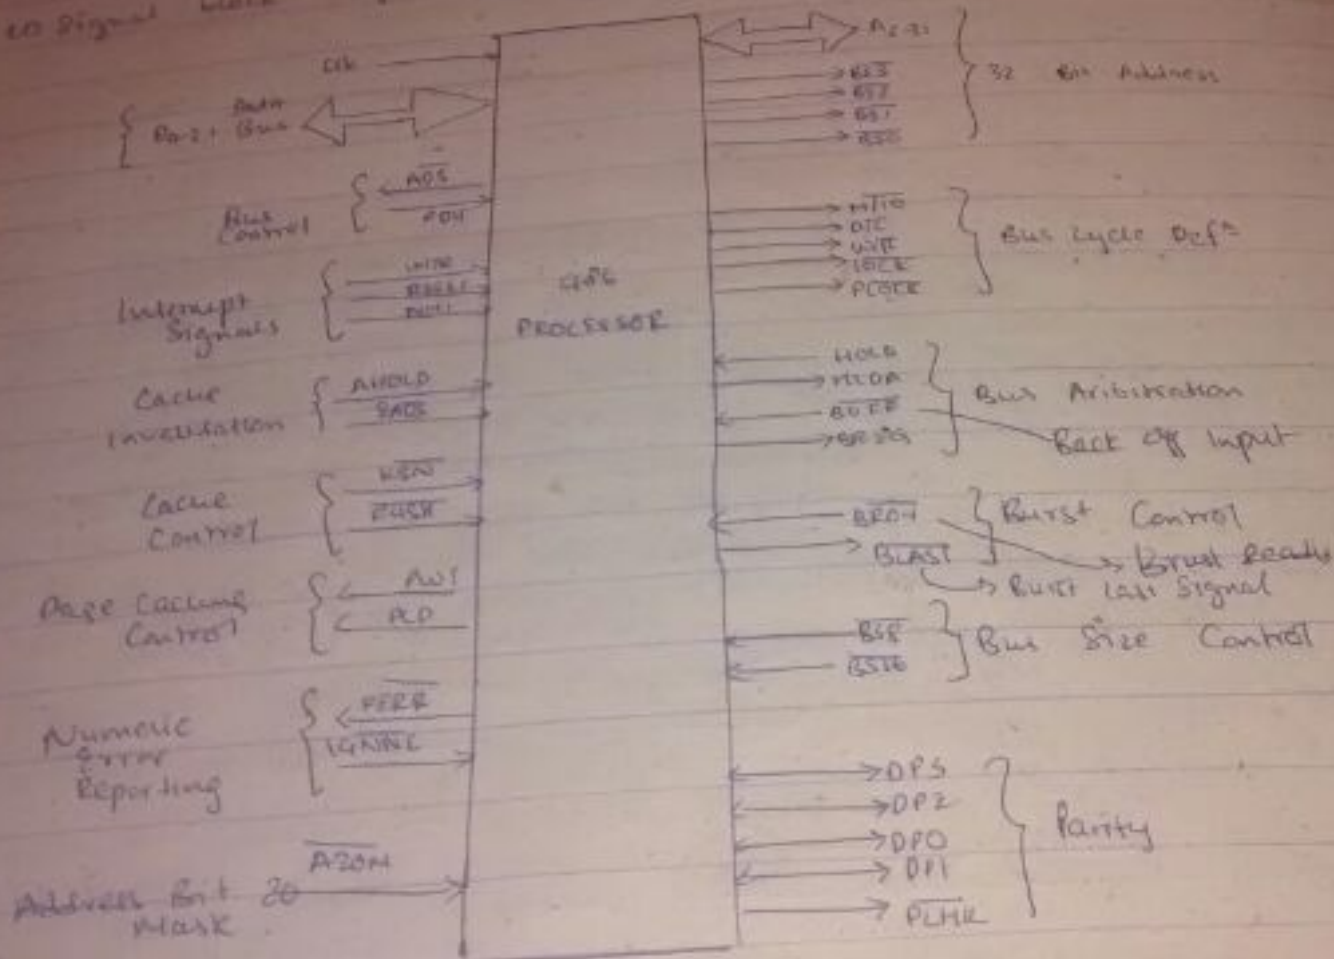 Signal
Clk
Data
Bus
Bus
Control
ADS
RDY
Interrupt
Signals
INTR
RESET
NMI
Cache
Invalidation
AHOLD
EADS
Cache
Control
KEN
FLUSH
Page Caching
Control
PWT
PCD
Numeric
Error
Reporting
FERR
IGNNE
Address Bit 20
Mask
A20M
486
PROCESSOR
BE3
BE2
BE1
BE0
32 Bit Address
M/IO
D/C
W/R
LOCK
PLOCK
Bus Cycle Defn
HOLD
HLDA
BOFF
BREQ
Bus Aribitration
Back Off Input
BRDY
BLAST
Burst Control
Brust Ready
Burst Last Signal
BS8
BS16
Bus Size Control
DP3
DP2
DP0
DP1
PCHK
Parity